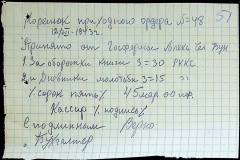 Корешок приходного ордера №48
51
12/VII-1943г.
Принято от
1. За оборотки книги 3=30 РККС
2. и Дневники молотьбы 3=15 "
/сорок пять/ 45 мар 00 пф.
Кассир /подпись/
С подлинным Верно
Бухгалтер